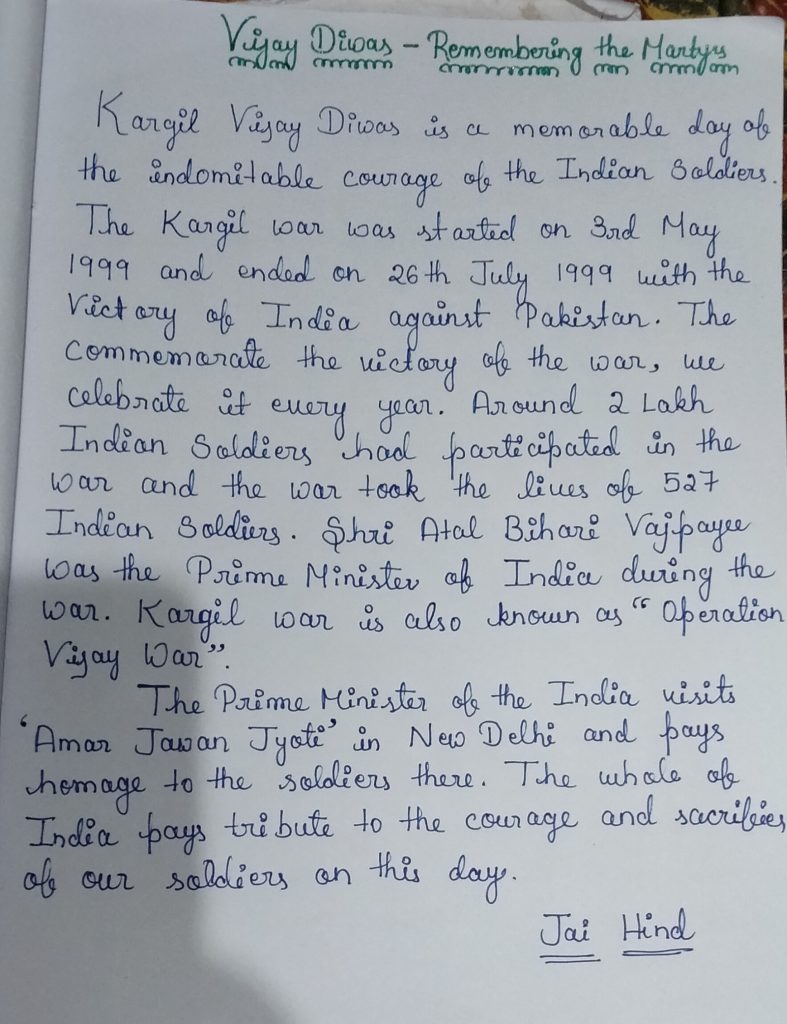 Vijay Diwas - Remembering the Martyrs
Kargil Vijay Diwas is a memorable day of
the indomitable courage of the Indian Soldiers.
The Kargil war was started on 3rd May
1999 and ended on 26th July 1999 with the
Victory of India against Pakistan. The
Commemorate the victory of the war, we
celebrate it every year. Around 2 Lakh
Indian Soldiers had participated in the
war and the war took the lives of 527
Indian Soldiers. Shri Atal Bihari Vajpayee
was the Prime Minister of India during the
war. Kargil war is also known as "Operation
Vijay War".
The Prime Minister of the India visits
'Amar Jawan Jyoti' in New Delhi and pays
homage to the soldiers there. The whole of
India pays tribute to the courage and sacrifies
of our soldiers on this day.
Jai Hind